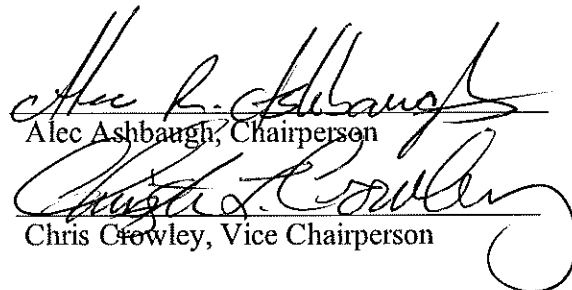 Alec R. Ashbaugh
Alec Ashbaugh, Chairperson
L. Crowley
Chris Crowley, Vice Chairperson